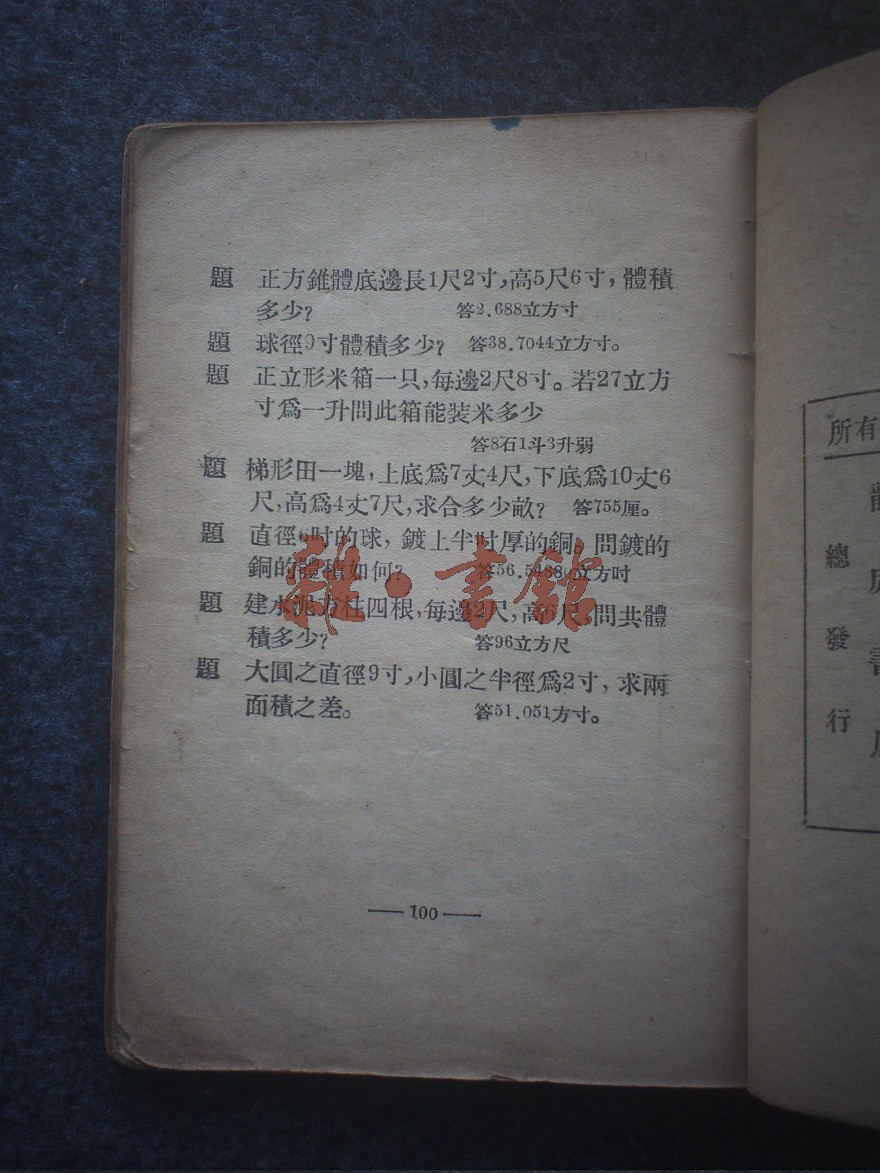 題 正方錐體底邊長1尺2寸,高5尺6寸,體積
多少? 答2.688立方寸
題 球徑9寸體積多少? 答38.7044立方寸。
題 正立形米箱一只,每邊2尺8寸。若27立方
寸爲一升問此箱能裝米多少
答8石1斗3升弱
題 梯形田一塊,上底爲7丈4尺,下底爲10丈6
尺,高爲4丈7尺,求合多少畝? 答755厘。
題 直徑 吋的球,鍍上半吋厚的銅,問鍍的
銅的體積如何? 答56.5488立方吋
題 建水泥方柱四根,每邊2尺,高6尺,問共體
積多少? 答96立方尺
題 大圓之直徑9寸,小圓之半徑爲2寸,求兩
面積之差。 答51.051方寸。
—100—
雜·書館
所有
總發行
書